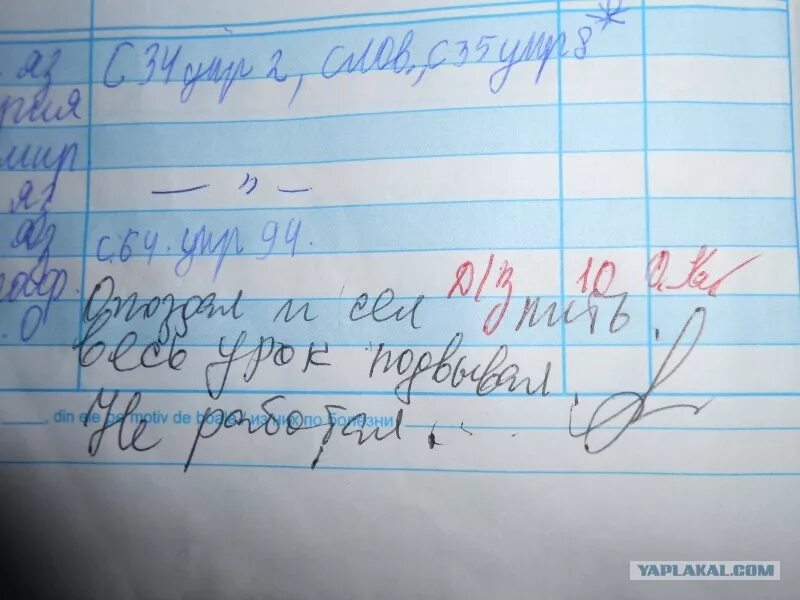 яз С 34 упр 2, слов., с 35 упр 8*
мир
яз — " —
яз с 64. упр 94.
Д/З 10
Опоздал и сел пить
О весь урок подвывал
din ele pe motiv de boală / из них по болезни
Не работал.
YAPLAKAL.COM